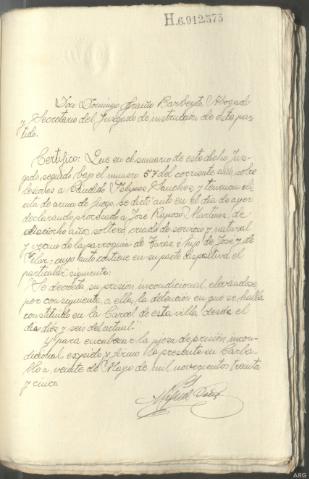 H.6.912.575
Don Domingo Barbeyto Abogado
y Secretario del Juzgado de instrucción de este par-
tido.
Certifico: Que en el sumario de este dicho Juz-
gado, seguido bajo el numero 57 del corriente año, sobre
lesiones a Sanchez y tenencia ilí-
cita de arma de fuego, se dictó auto en el dia de ayer
declarando procesado a José Raposo Martinez, de
dieciocho años, soltero, criado de servicio y natural
y vecino de la parroquia de e hijo de José y de
Pilar; cuyo auto contiene en su parte dispositiva el
particular siguiente:
"Se decreta su prision incondicional elevandose
por consiguiente, a ella, la detencion en que se halla
constituido en la Carcel de esta villa desde el
dia diez y seis del actual".
Y para encabezar la pieza de prision incon-
dicional expido y firmo la presente en Carba-
llo a, veinte de Mayo de mil novecientos treinta
y cinco
ARG